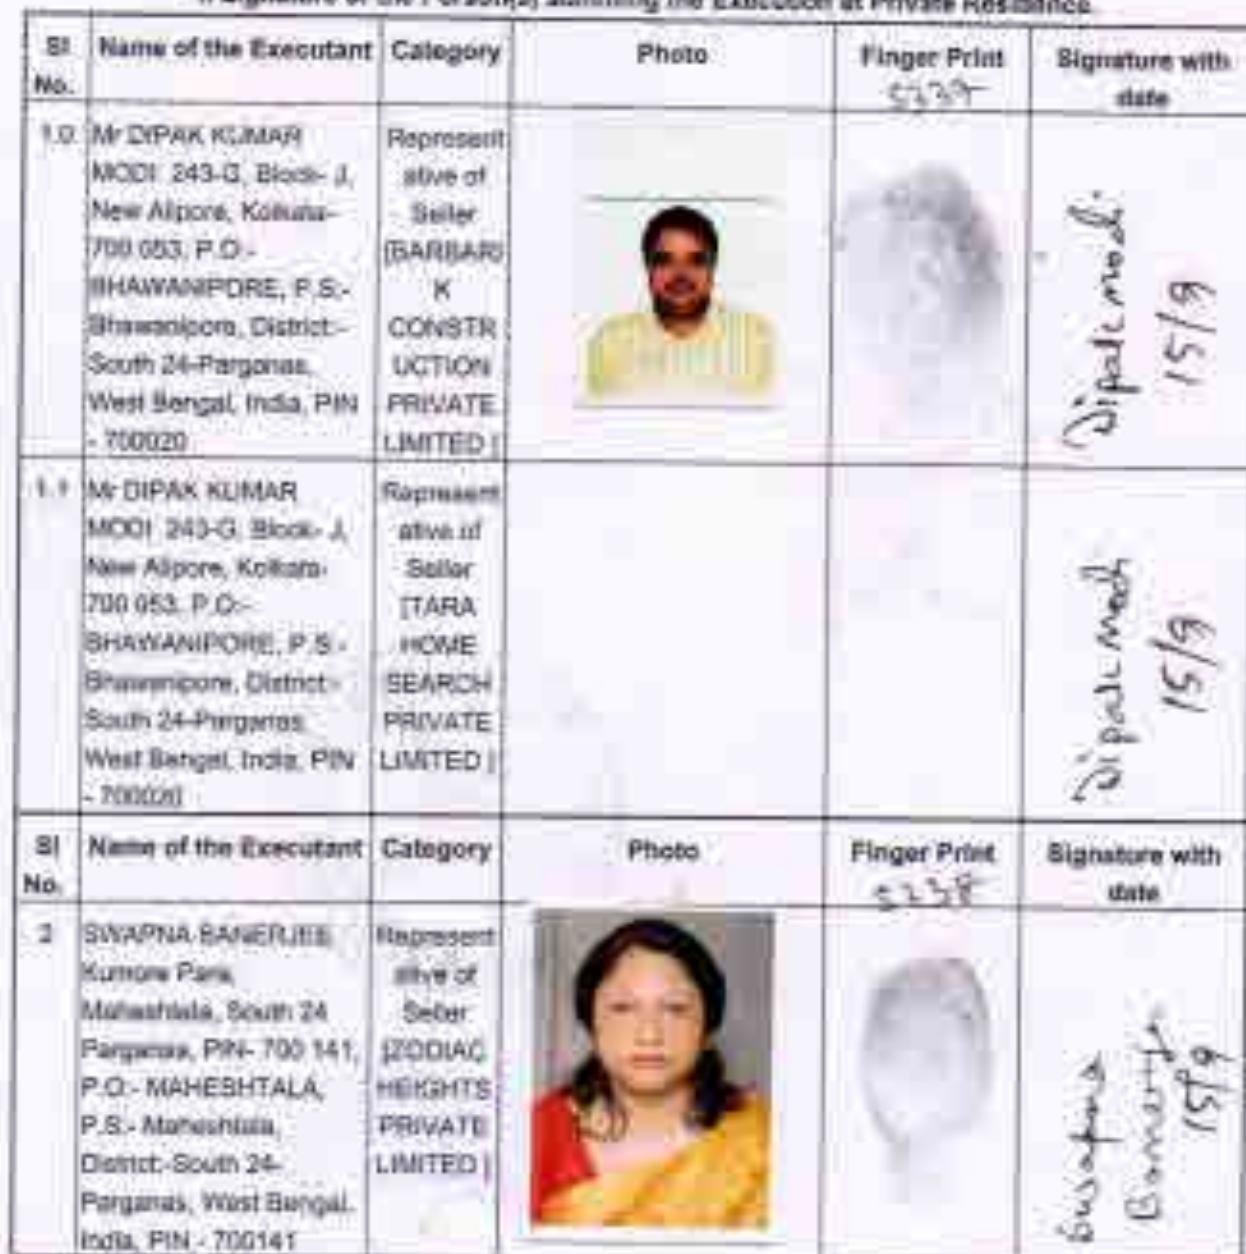 Signature of the Person(s) admitting the Execution at Private Residence.
Sl No. Name of the Executant Category Photo Finger Print Signature with date
5239
1.0 Mr DIPAK KUMAR
MODI 243-G, Block- J,
New Alipore, Kolkata-
700 053, P.O:-
BHAWANIPORE, P.S:-
Bhawanipore, District:-
South 24-Parganas,
West Bengal, India, PIN
- 700020
Represent
ative of
Seller
[BARBARI
K
CONSTR
UCTION
PRIVATE
LIMITED ]
Dipak modi
15/9
1.1 Mr DIPAK KUMAR
MODI 243-G, Block- J,
New Alipore, Kolkata-
700 053, P.O:-
BHAWANIPORE, P.S:-
Bhawanipore, District:-
South 24-Parganas,
West Bengal, India, PIN
- 700020
Represent
ative of
Seller
[TARA
HOME
SEARCH
PRIVATE
LIMITED ]
Dipak Modi
15/9
Sl No. Name of the Executant Category Photo Finger Print Signature with date
5238
2 SWAPNA BANERJEE
Kumore Para,
Maheshtala, South 24
Parganas, PIN- 700 141,
P.O:- MAHESHTALA,
P.S:- Maheshtala,
District:-South 24-
Parganas, West Bengal,
India, PIN - 700141
Represent
ative of
Seller
[ZODIAC
HEIGHTS
PRIVATE
LIMITED ]
Swapna
Banerjee
15/9